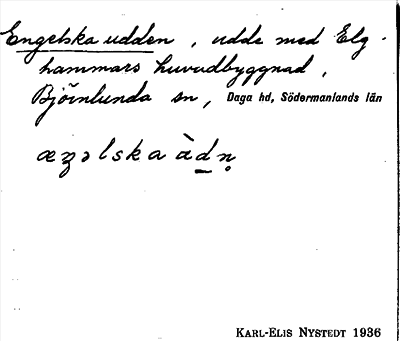 Engelska udden, udde med Elg-
hammars huvudbyggnad,
Björnlunda sn, Daga hd, Södermanlands län
æŋəlska àdṇ
KARL-ELIS NYSTEDT 1936